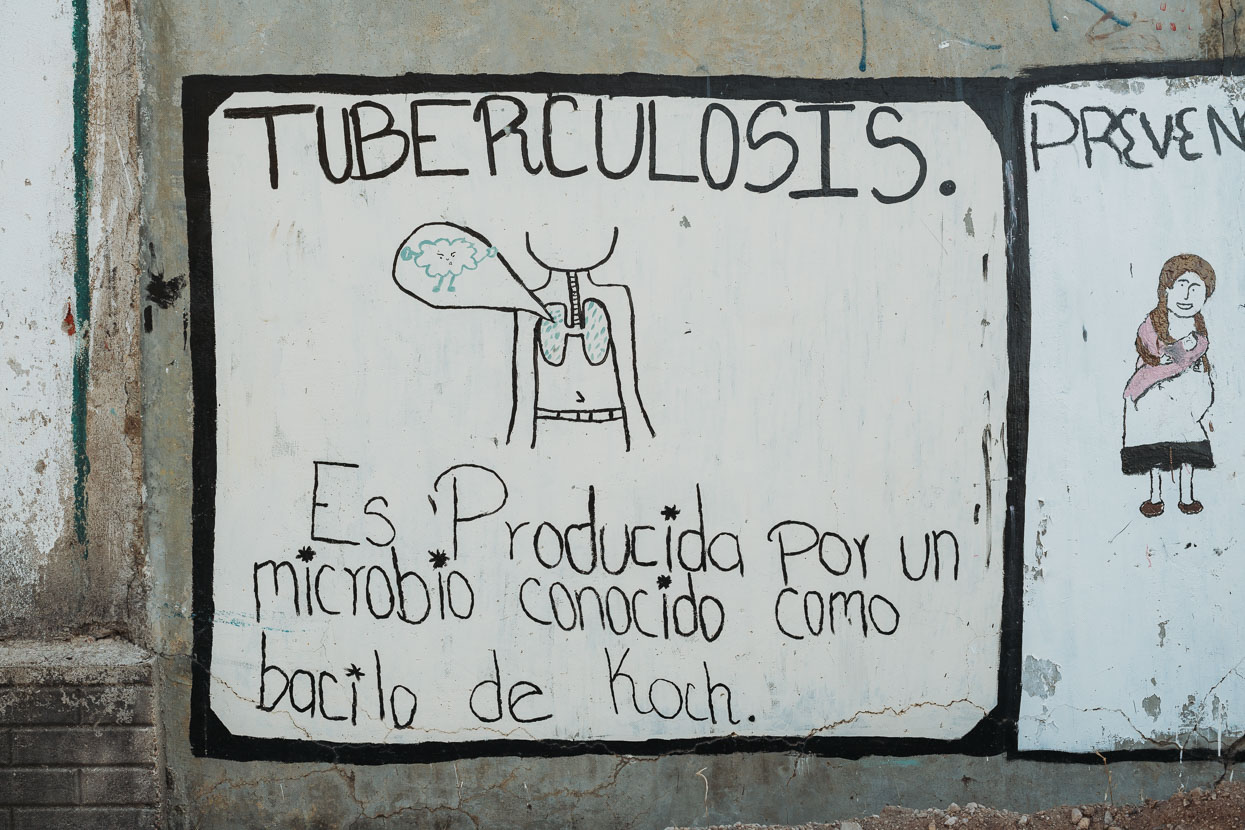 TUBERCULOSIS.
Es Producida por un
microbio conocido como
bacilo de Koch.
PREVEN